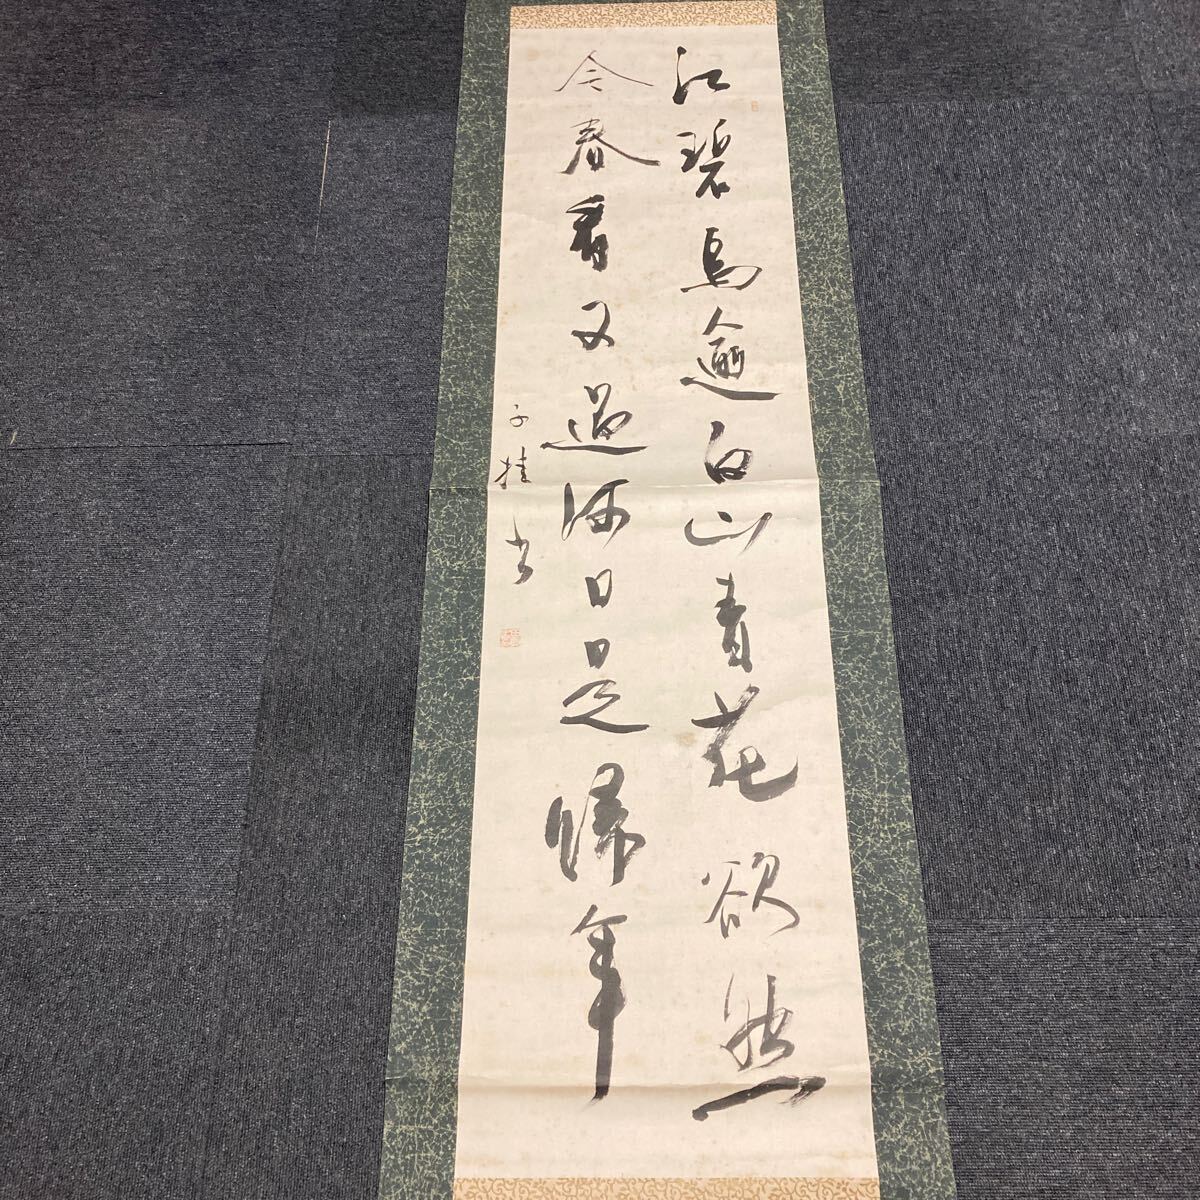 江碧鳥逾白山青花欲然
今春看又過何日是歸年
子桂書